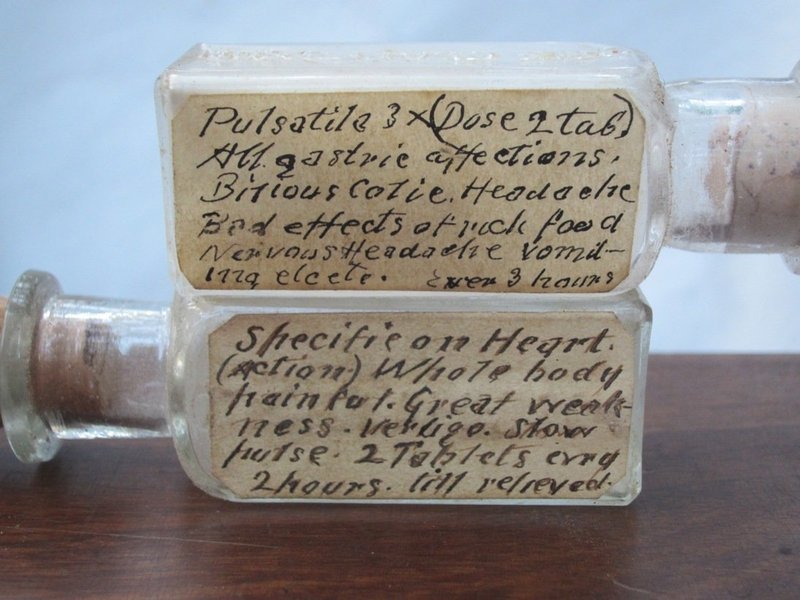 Pulsatila 3 x (Dose 2 tab)
All gastric affections.
Birious Colic. Headache
Bad effects of rich food
Nervous Headache Vomit-
ing etcetc. Ever 3 hours
Specific on Heart.
(action) Whole body
painful. Great weak-
ness. vertigo. Slow
pulse. 2 Tablets evry
2 hours. till relieved.